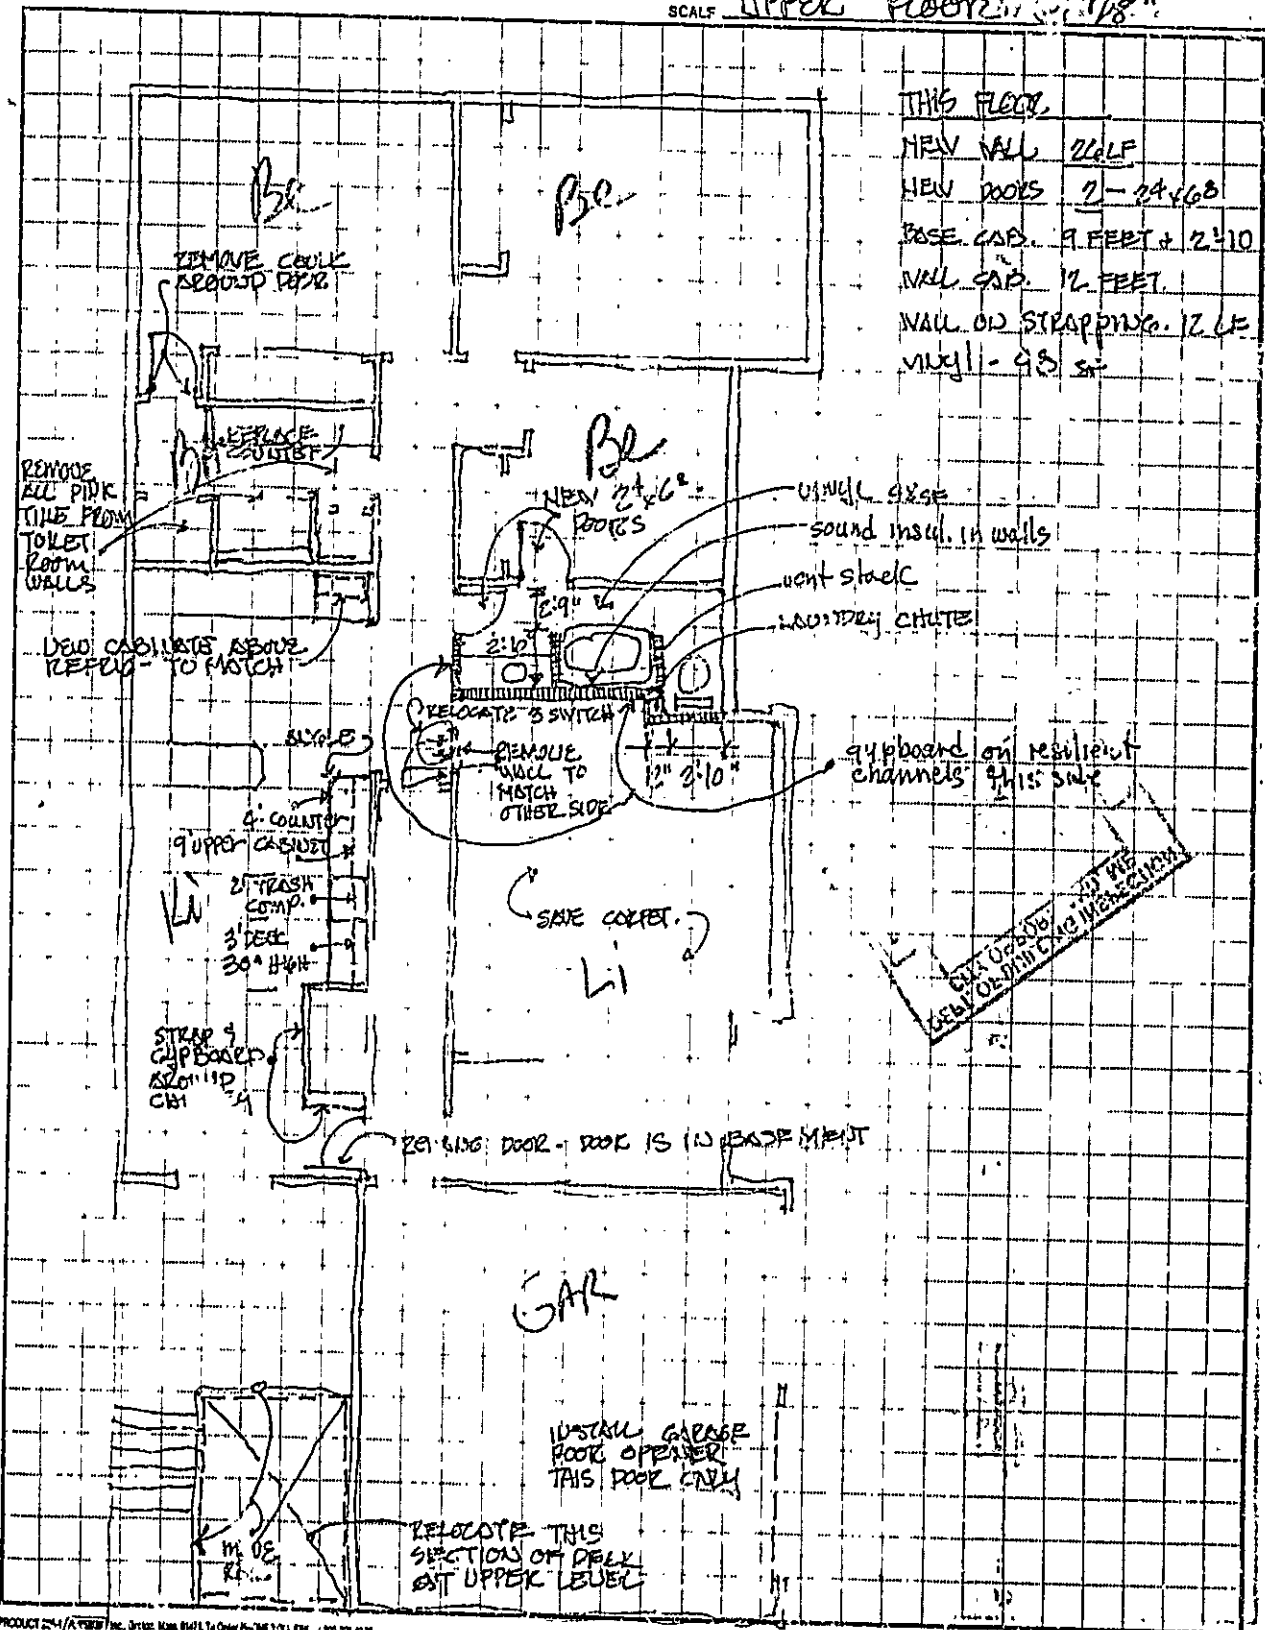 SCALE UPPER FLOOR 1/8"
THIS FLOOR
NEW WALL 26 LF
NEW DOORS 2 - 24x68
BASE CAB. 9 FEET + 2'-10
WALL CAB. 12 FEET.
WALL ON STRAPPING. 12 LF
VINYL - 93 SF
Be
Be
REMOVE CAULK
AROUND DOOR
REPLACE
COUNTER
Be
REMOVE
ALL PINK
TILE FROM
TOILET
ROOM
WALLS
NEW 24x68
DOORS
VINYL BASE
sound insul. in walls
vent stack
LAUNDRY CHUTE
2'9"
2'6"
NEW CABINATE ABOVE
REFRIG - TO MATCH
RELOCATE 3 SWITCH
REMOVE
WALL TO
MATCH
OTHER SIDE
12" 2'10"
gypboard on resilient
channels this side
4' COUNTER
9' UPPER CABINET
2' TRASH
COMP.
3' DECK
30" HIGH
SAVE CARPET.
Li
Li
CITY OF
DEPT. OF BUILDING INSPECTION
STRAP &
GYPBOARD
AROUND
DOOR - DOOR IS IN BASEMENT
GAR
INSTALL GARAGE
DOOR OPENER
THIS DOOR ONLY
RELOCATE THIS
SECTION OF DECK
AT UPPER LEVEL
PRODUCT